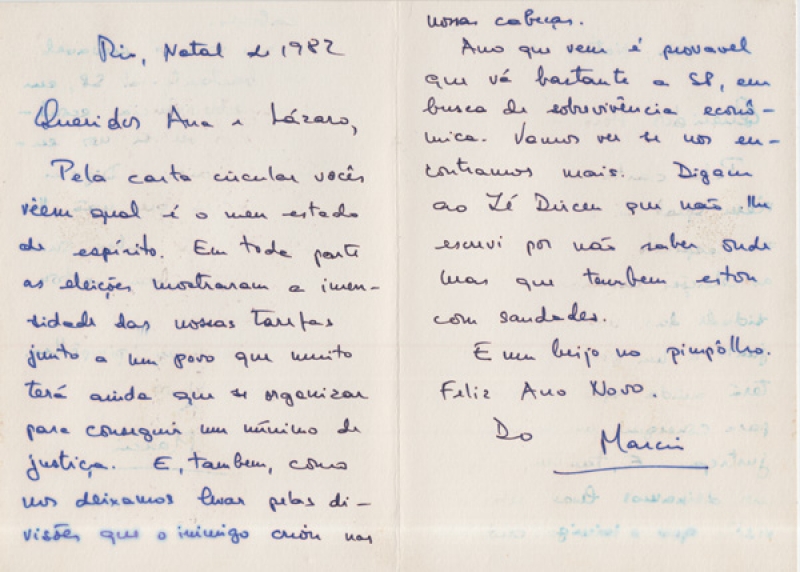 Rio, Natal de 1982
Queridos Ana e Lázaro,
Pela carta circular vocês
vêem qual é o meu estado
de espírito. Em toda parte
as eleições mostraram a imen-
sidade das nossas tarefas
junto a um povo que muito
terá ainda que se organizar
para conseguir um mínimo de
justiça. E, tambem, como
nos deixamos levar pelas di-
visões que o inimigo criou nas
nossas cabeças.
Ano que vem é provavel
que vá bastante a SP, em
busca de sobrevivência econô-
mica. Vamos ver se nos en-
contramos mais. Digam
ao Zé Dirceu que não lhe
escrevi por não saber onde
mas que tambem estou
com saudades.
E um beijo no pimpôlho.
Feliz Ano Novo.
Do Marcio